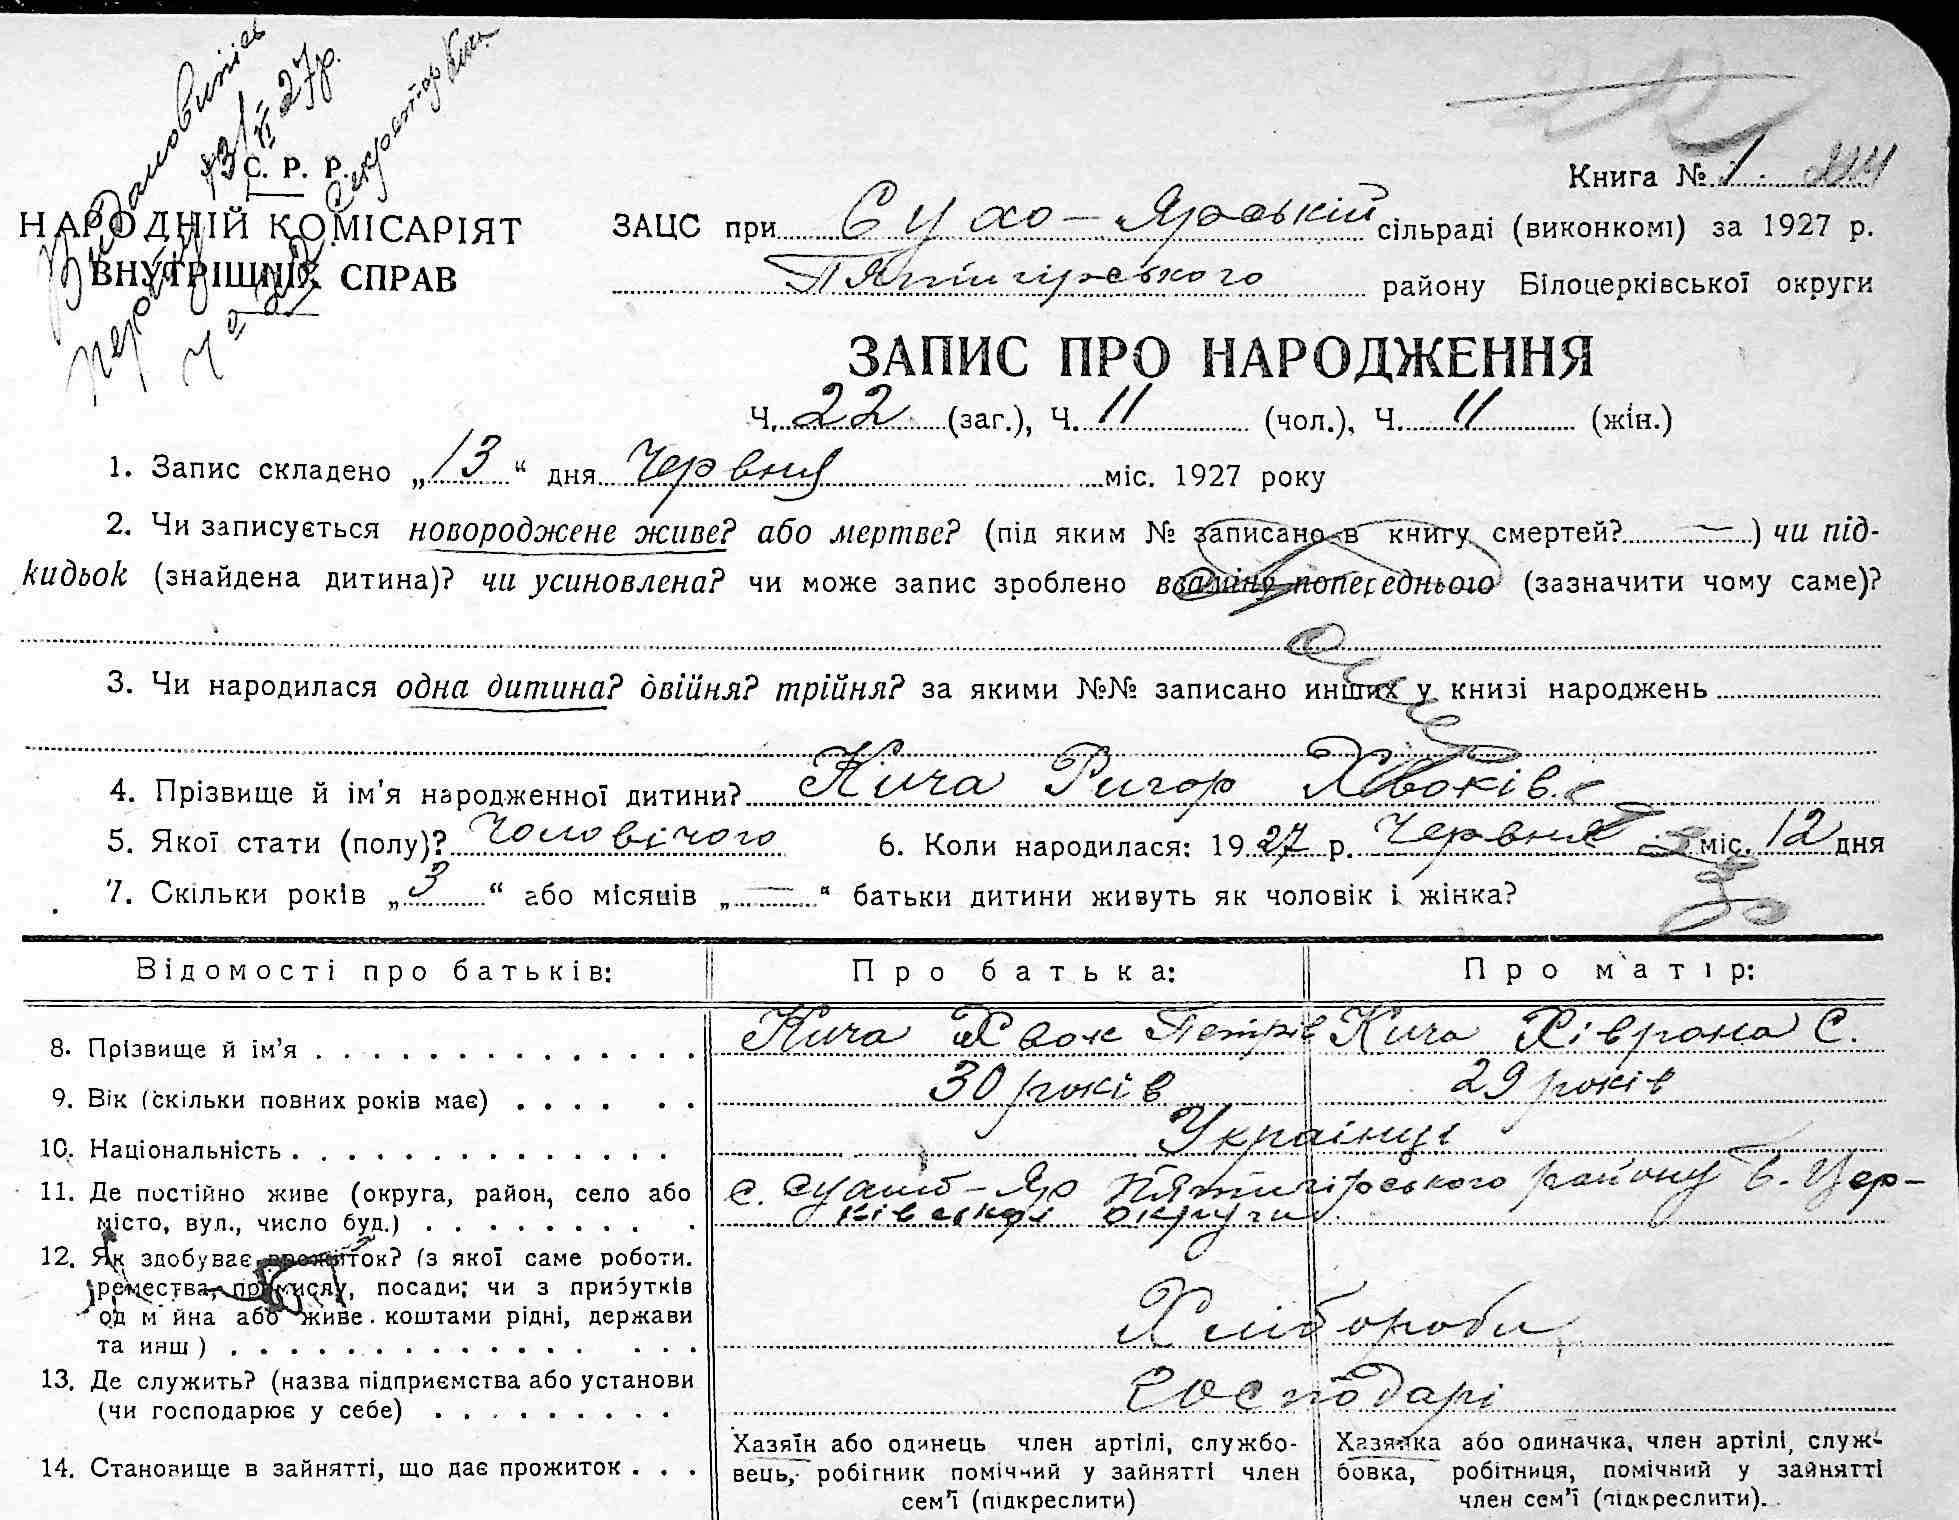 Видано витяг
13/VI 27 р.
Секретар Кича
С. Р. Р.
НАРОДНІЙ КОМІСАРІЯТ
ВНУТРІШНІХ СПРАВ
Книга № 1.
ЗАЦС при Сухо-Ярській сільраді (виконкомі) за 1927 р.
Пятигірського району Білоцерківської округи
ЗАПИС ПРО НАРОДЖЕННЯ
Ч. 22 (заг.), Ч. 11 (чол.), Ч. 11 (жін.)
1. Запис складено „13“ дня Червня міс. 1927 року
2. Чи записується новороджене живе? або мертве? (під яким № записано в книгу смертей? —) чи під-
кидьок (знайдена дитина)? чи усиновлена? чи може запис зроблено взамінь попереднього (зазначити чому саме)?
3. Чи народилася одна дитина? двійня? трійня? за якими №№ записано инших у книзі народжень
4. Прізвище й ім'я народженної дитини? Кича Ригор Хвоків.
5. Якої стати (полу)? Чоловічого 6. Коли народилася: 1927 р. Червня міс. 12 дня
7. Скільки років „3“ або місяців „—“ батьки дитини живуть як чоловік і жінка?
Відомості про батьків: Про батька: Про матір:
8. Прізвище й ім'я Кича Хвок Петрів Кича Хіврона С.
9. Вік (скільки повних років має) 30 років 29 років
10. Національність Українці
11. Де постійно живе (округа, район, село або с. Сухий-Яр Пятигірського району Б. Цер-
місто, вул., число буд.) ківської округи
12. Як здобуває прожиток? (з якої саме роботи.
ремества, промислу, посади; чи з прибутків
од м йна або живе коштами рідні, держави
та инш) Хлібороби
13. Де служить? (назва підприємства або установи
(чи господарює у себе) Господарі
14. Становище в зайнятті, що дає прожиток
Хазяїн або одинець член артілі, службо-
вець, робітник помічний у зайнятті член
сем'ї (підкреслити)
Хазяйка або одиначка, член артілі, служ-
бовка, робітниця, помічний у зайнятті
член сем'ї (підкреслити).